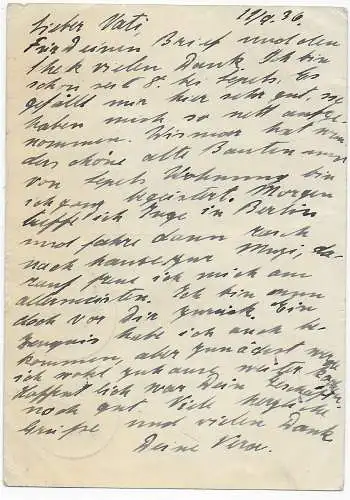 Lieber Vati, 19/9.36.
Für Deinen Brief und den
Scheck vielen Dank. Ich bin
schon seit 8. bei Sepels. Es
gefällt mir hier sehr gut, sie
haben mich so nett aufge-
nommen. Wismar hat wun
der schöne alte Bauten und
von Sepels Wohnung bin
ich ganz begeistert. Morgen
treffe ich Inge in Berlin
und fahre dann rasch
nach hause zur Muzi, da-
rauf freue ich mich am
allermeisten. Ich bin
doch vor Dir zurück. Ein
Zeugnis habe ich auch be-
kommen, aber zunächst werde
ich wohl zuhause weiter
Hoffentlich war Dein
noch gut. Viele herzliche
Grüße und vielen Dank
Deine Vera.